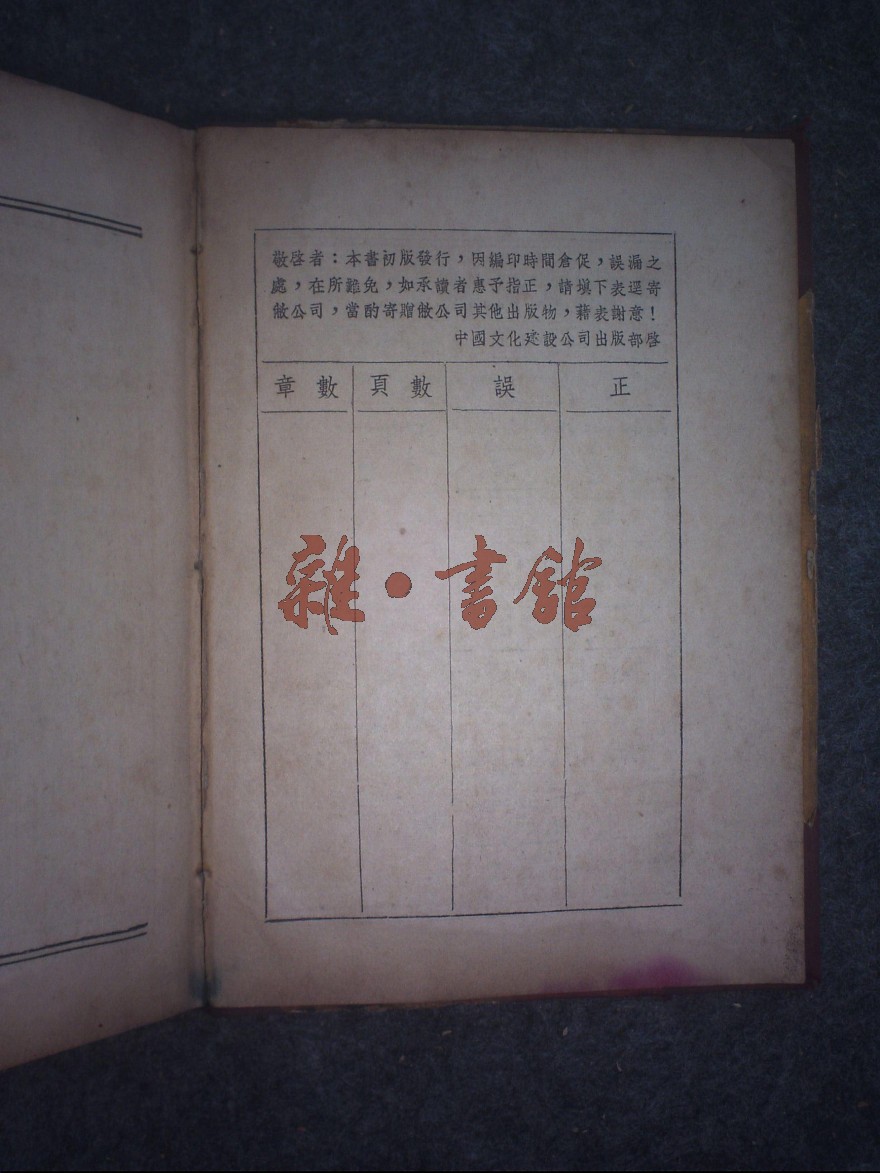 敬啓者：本書初版發行，因編印時間倉促，誤漏之
處，在所難免，如承讀者惠予指正，請塡下表逕寄
敝公司，當酌寄贈敝公司其他出版物，藉表謝意！
中國文化建設公司出版部啓
章數 頁數 誤 正
雜·書館